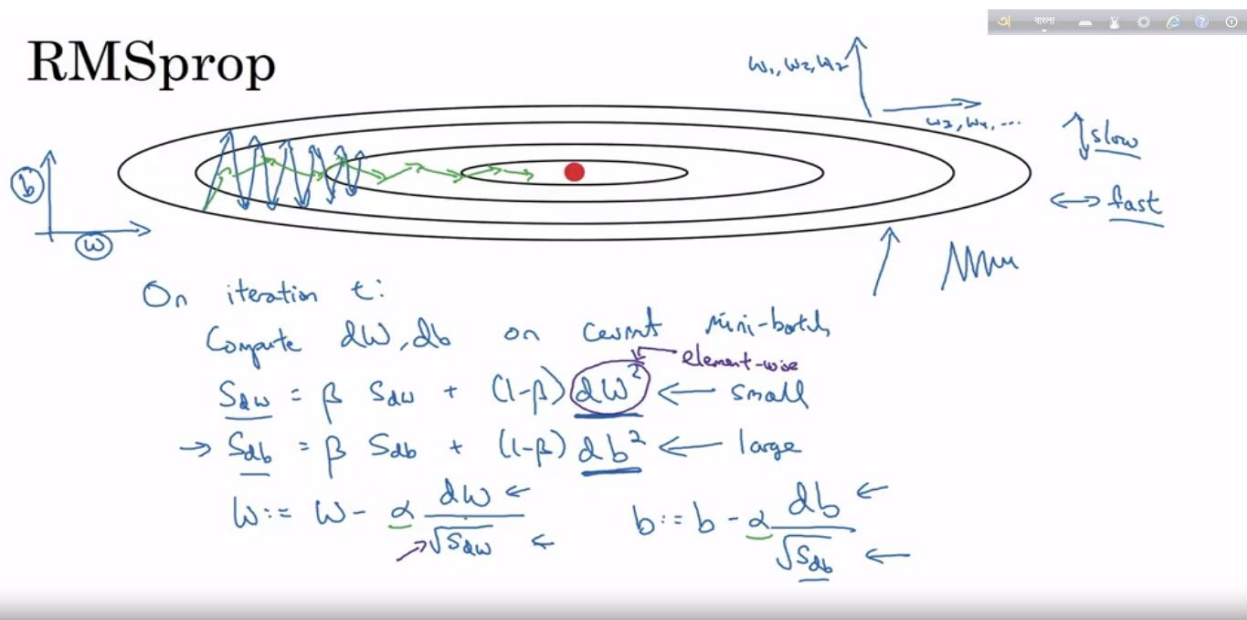 বাংলা
RMSprop
w₁, w₂, w₂
w₃, w₄, ...
slow
fast
b
w
On iteration t:
Compute dW, db on current mini-batch
element-wise
S_dw = β S_dw + (1-β) dW² ← small
→ S_db = β S_db + (1-β) db² ← large
W := W - α dW / √S_dw
b := b - α db / √S_db